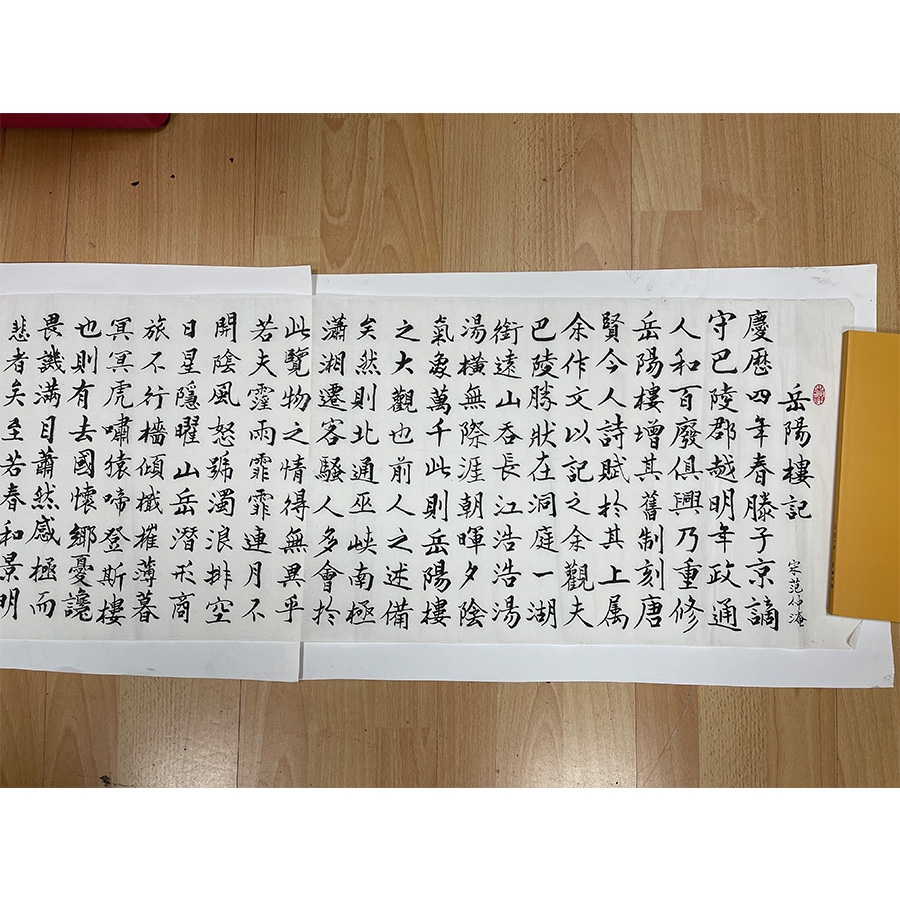 岳陽樓記
宋范仲淹
慶歷四年春滕子京謫
守巴陵郡越明年政通
人和百廢俱興乃重修
岳陽樓增其舊制刻唐
賢今人詩賦於其上属
余作文以記之余觀夫
巴陵勝狀在洞庭一湖
銜遠山吞長江浩浩湯
湯橫無際涯朝暉夕陰
氣象萬千此則岳陽樓
之大觀也前人之述備
矣然則北通巫峽南極
瀟湘遷客騷人多會於
此覽物之情得無異乎
若夫霪雨霏霏連月不
開陰風怒號濁浪排空
日星隱曜山岳潛形商
旅不行檣傾檝摧薄暮
冥冥虎嘯猿啼登斯樓
也則有去國懷鄉憂讒
畏譏滿目蕭然感極而
悲者矣至若春和景明